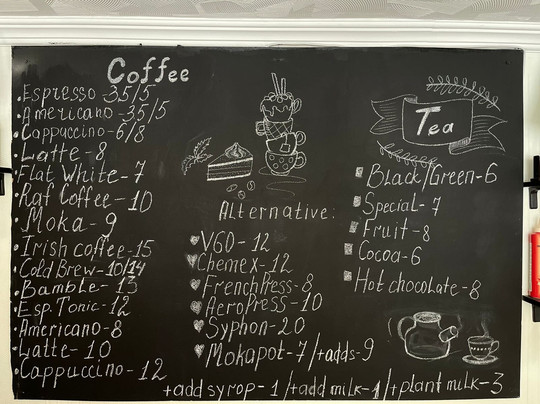 Coffee
Espresso 3.5/5
Americano - 3.5/5
Cappuccino - 6/8
Latte - 8
Flat White - 7
Raf Coffee - 10
Moka - 9
Irish coffee - 15
Cold Brew - 10/14
Bamble - 13
Esp. Tonic - 12
Americano - 8
Latte - 10
Cappuccino - 12
Alternative:
V60 - 12
Chemex - 12
FrenchPress - 8
AeroPress - 10
Syphon - 20
Mokapot - 7/+adds - 9
Tea
Black/Green - 6
Special - 7
Fruit - 8
Cocoa - 6
Hot chocolate - 8
+add syrop - 1/+add milk - 1/+plant milk - 3